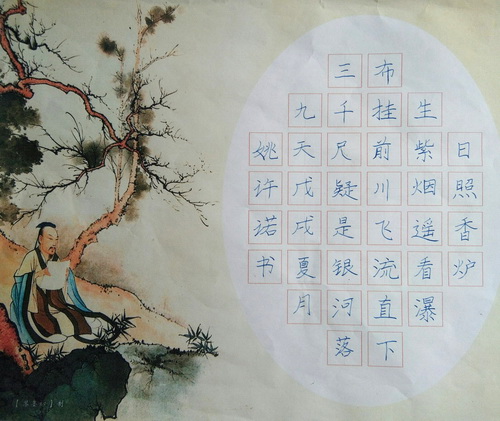 日照香炉
生紫烟遥看瀑
布挂前川飞流直下
三千尺疑是银河落
九天戊戌夏月
姚许诺书